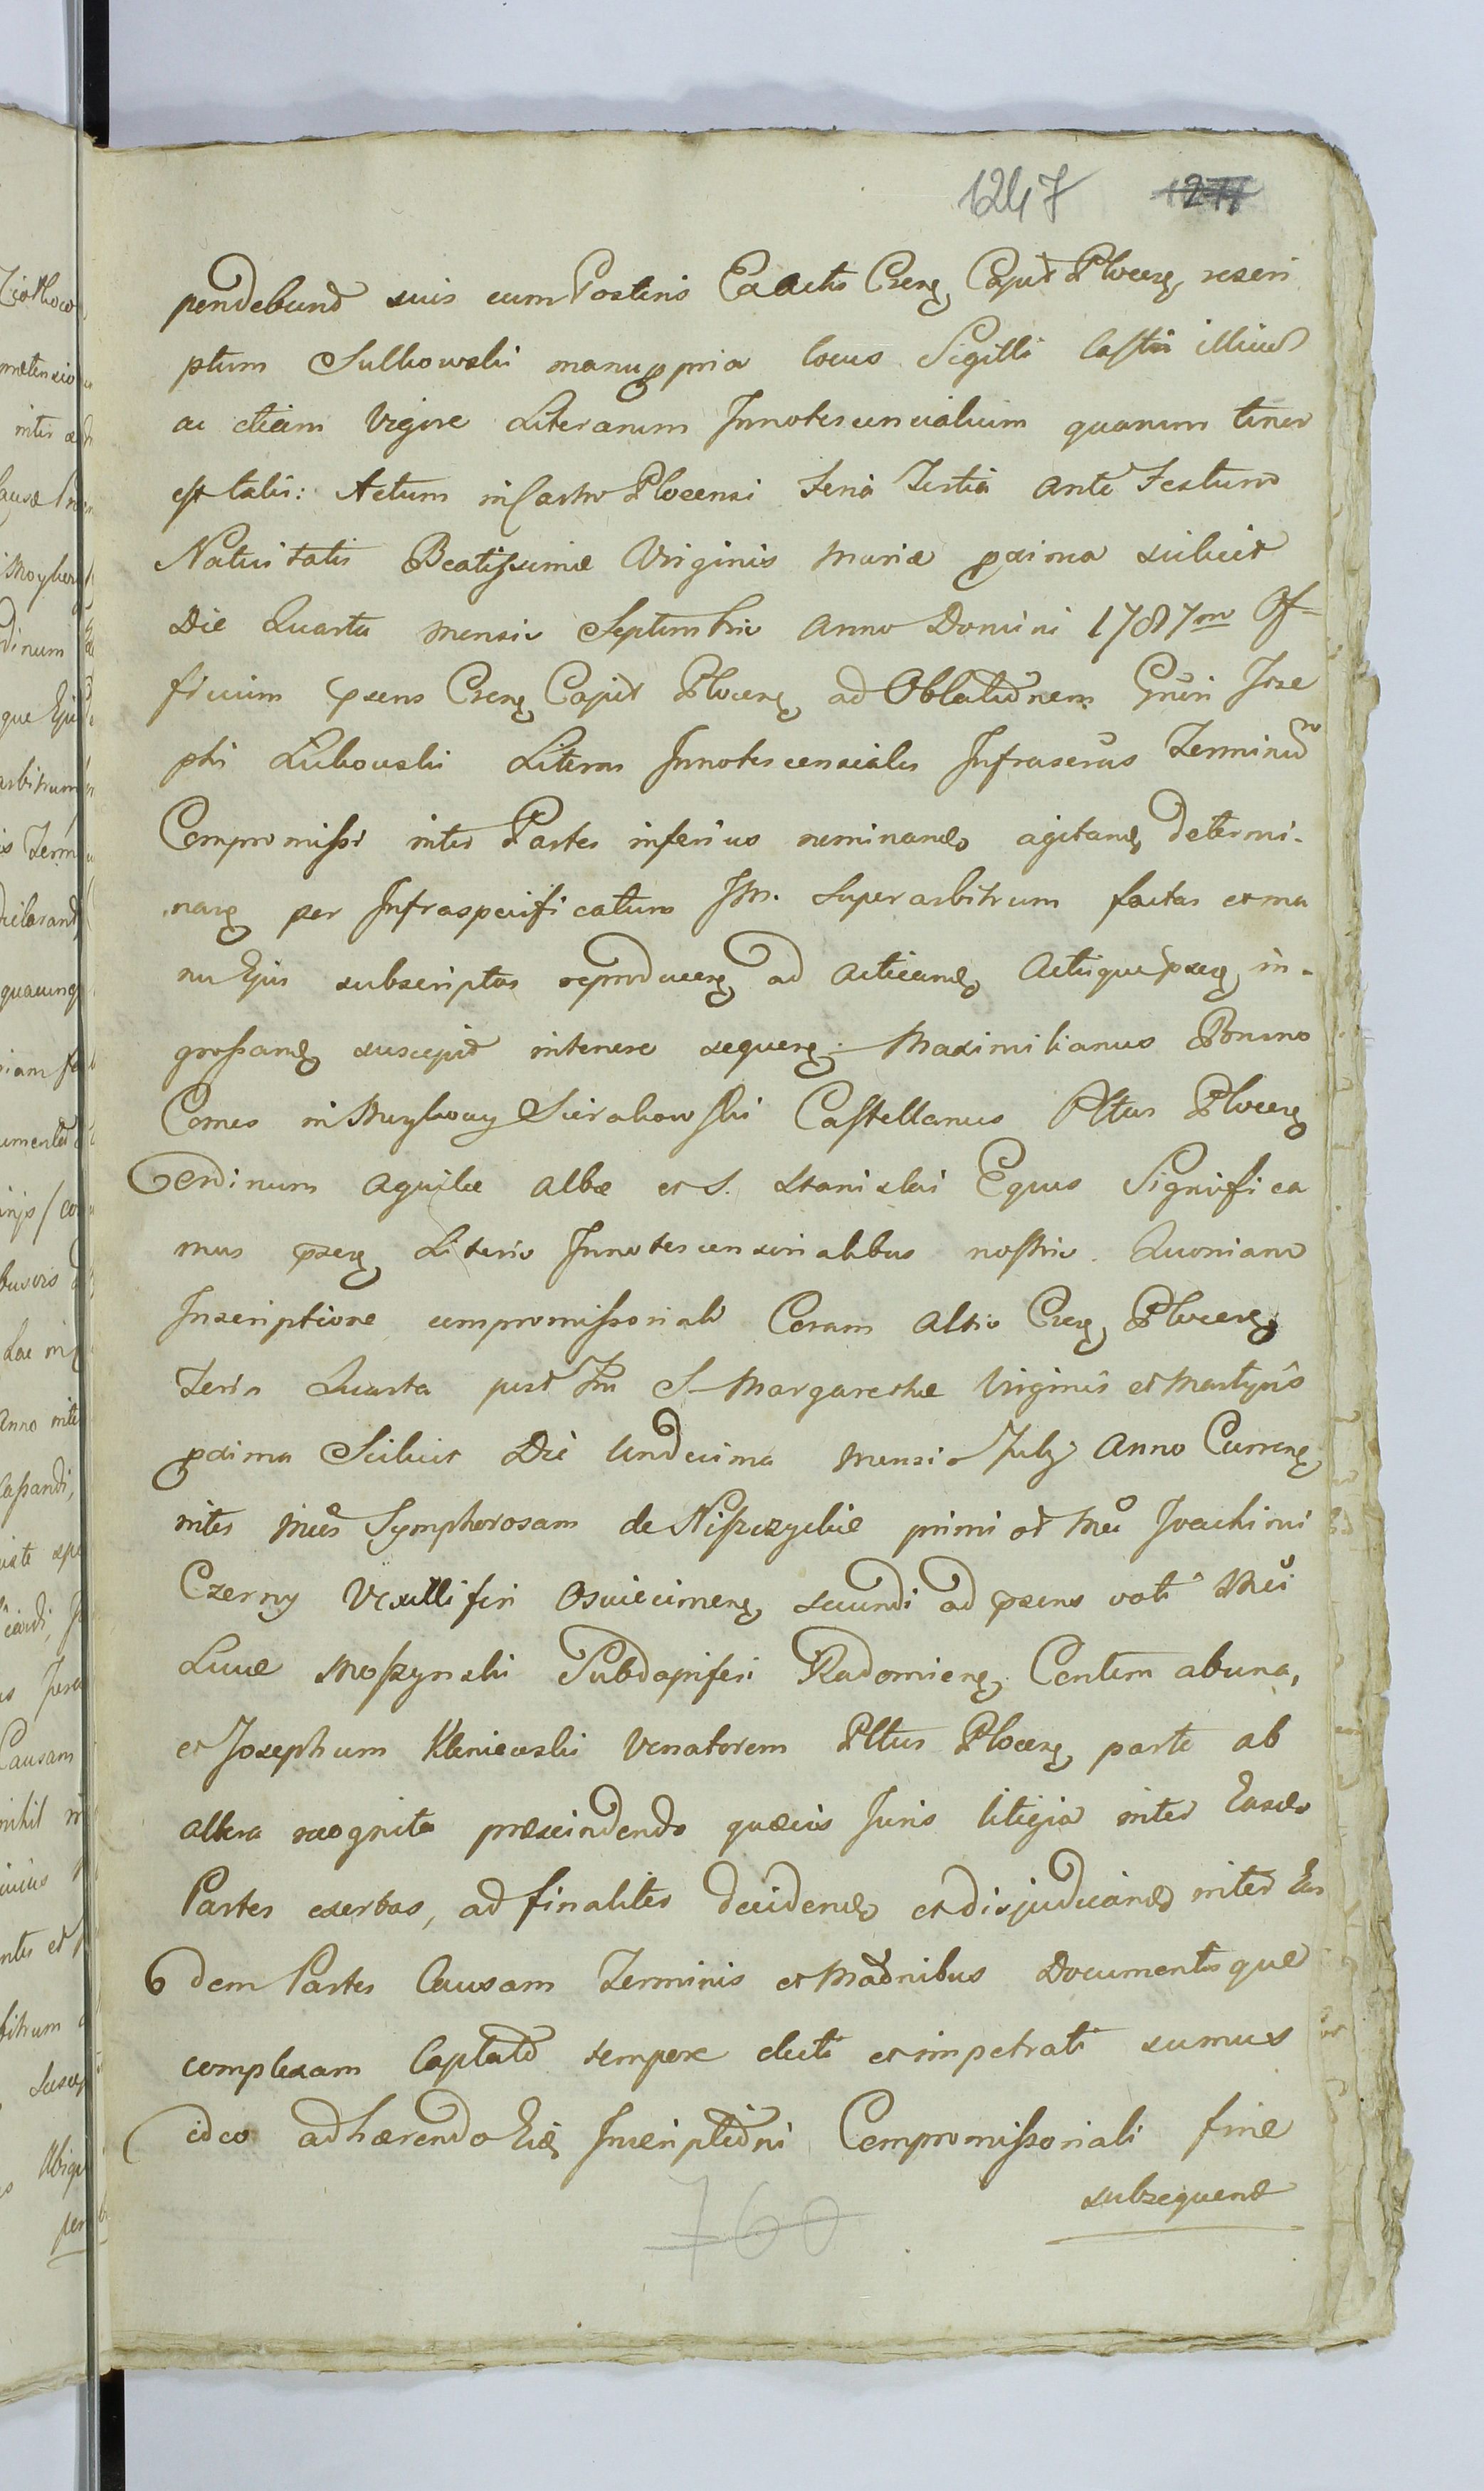 1247 1277
pendebund suis cum Posteris Ex Actis Cseng Capit Ploceng rescri
ptum Sulkowski manu ppria locus Sigilli Castri illius
ac etiam vigore Literarum Innotescencialium quarum tenor
est talis: Actum in Castro Plocensi Feria Tertia ante Festum
Nativitatis Beatissimæ Virginis Mariæ pxima scilicet
Die Quarta mensis Septembris Anno Domini 1787mo Of=
ficium psens Cseng Capit Ploceng ad Oblationem Gnsi Jose
phi Lukowski Literas Innotescenciales Infrascrus Terminum
Compromissi inter Partes inferius nominand agitand determi-
nang per Infraspecificatum Jm. Superarbitrum factas et ma
nu Ejus subscriptas reproduceng ad acticand Actisque pseng in-
grossand suscepit intenore sequeng. Maximilianus Bruno
Comes in Myslowy Sierakowski Castellanus Pltus Ploceng
Ordinum Aquilæ Albæ et S. Stanislai Eques Significa
mus pseng Literis Innotescensorialibus nostris. Quoniam
Inscriptione compromissoriali Coram Actis Cseng Ploceng
Feria Quarta post Fm S. Margarethæ Virginis et Martyris
pxima Scilicet Die Undecima Mensis July Anno Curreng
inter Mcas Symphorosam de Niszczyckie primi ol Mci Joachimi
Czerny Vexilliferi Osviecimeng secundi ad psens voti Mci
Lucæ Moszynski Subdapiferi Radomieng Contem ab una,
et Josephum Kleniewski Venatorem Pltus Ploceng parte ab
altera recognita præscindendo quævis Juris litigia inter Easd
Partes exertas, ad finaliter decidend et dijudicand inter Eas
dem Partes Causam Terminis et Madnibus Documentisque
complexam Captato tempore electi et impetrati sumus
ideo adhærendo Eid Inscriptioni Compromissoriali fine
subsequend
760